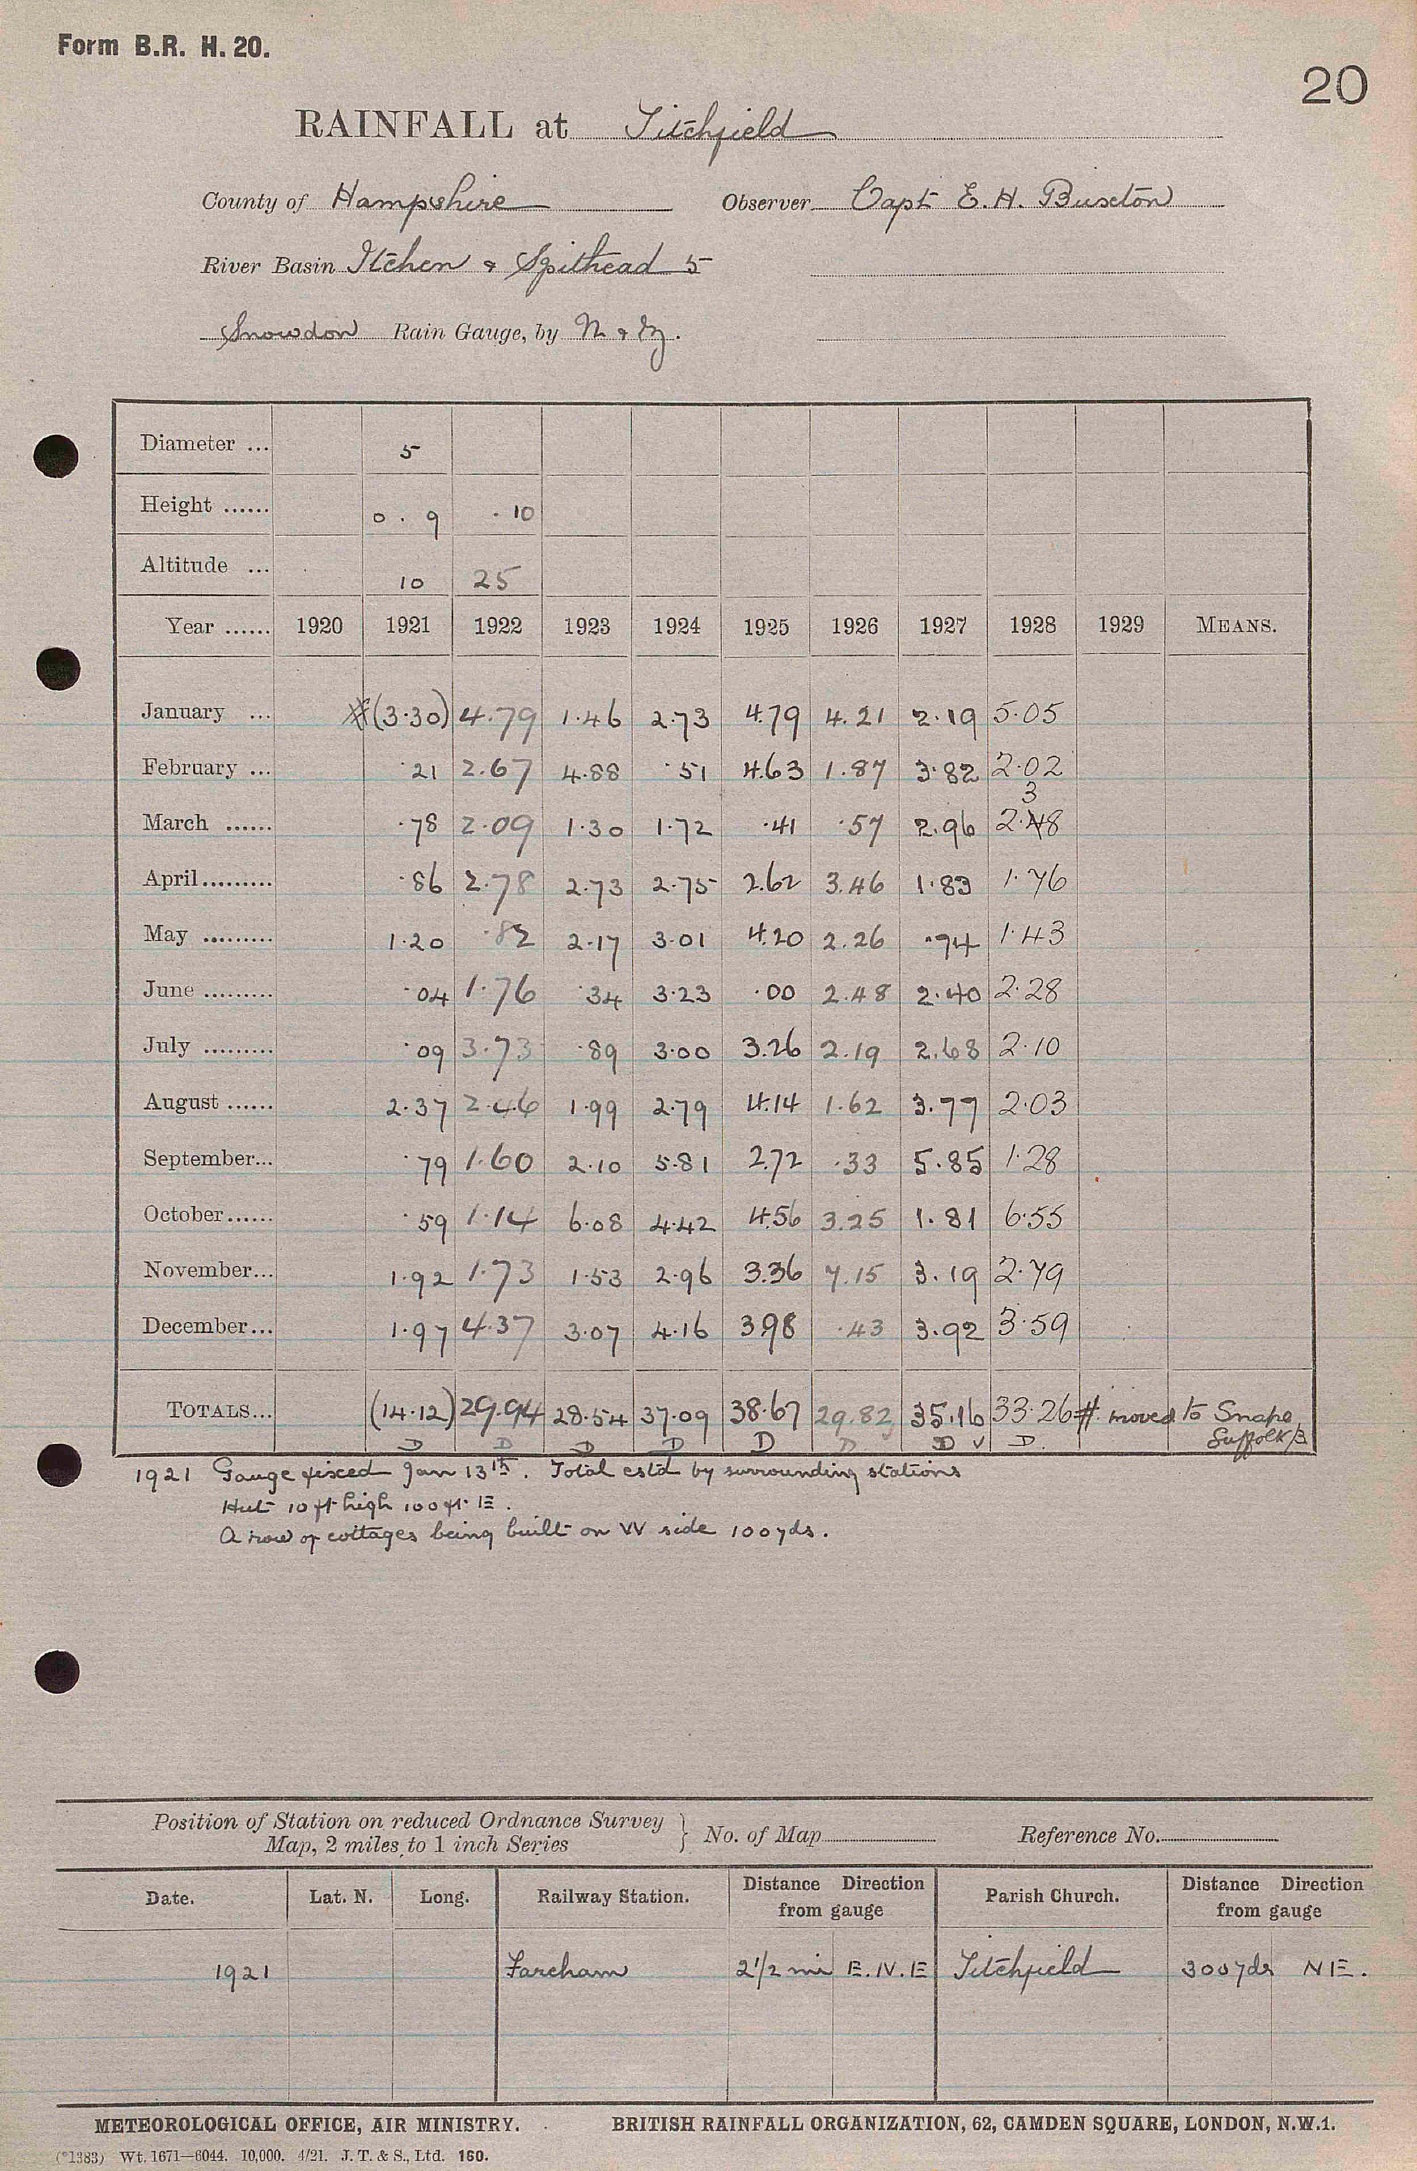 Form B.R. H. 20.
20
RAINFALL at Titchfield
County of Hampshire Observer Capt E. H. Buxton
River Basin Itchen & Spithead 5
Snowdon Rain Gauge, by N & Z.
Diameter ... 5
Height ...... 0 . 9 . 10
Altitude ... 10 25
Year ...... 1920 1921 1922 1923 1924 1925 1926 1927 1928 1929 MEANS.
January ... #(3.30) 4.79 1.46 2.73 4.79 4.21 2.19 5.05
February ... .21 2.67 4.88 .51 4.63 1.87 3.82 2.02
3
March ...... .78 2.09 1.30 1.72 .41 .57 2.96 2.48
April ......... .86 2.78 2.73 2.75 2.62 3.46 1.83 1.76
May ......... 1.20 .82 2.17 3.01 4.20 2.26 .94 1.43
June ......... .04 1.76 .34 3.23 .00 2.48 2.40 2.28
July ......... .09 3.73 .89 3.00 3.26 2.19 2.68 2.10
August ...... 2.37 2.46 1.99 2.79 4.14 1.62 3.77 2.03
September... .79 1.60 2.10 5.81 2.72 .33 5.85 1.28
October...... .59 1.14 6.08 4.42 4.56 3.25 1.81 6.55
November... 1.92 1.73 1.53 2.96 3.36 7.15 3.19 2.79
December... 1.97 4.37 3.07 4.16 3.98 .43 3.92 3.59
TOTALS... (14.12) 29.94 28.54 37.09 38.67 29.82 35.16 33.26 # moved to Snape
D D D D D D D D Suffolk/3
1921 Gauge fixed Jan 13th. Total estd by surrounding stations
Hut 10 ft high 100 ft E.
A row of cottages being built on W side 100 yds.
Position of Station on reduced Ordnance Survey
Map, 2 miles to 1 inch Series } No. of Map Reference No.
Date. Lat. N. Long. Railway Station. Distance Direction from gauge Parish Church. Distance Direction from gauge
1921 Fareham 2 1/2 mi E.N.E Titchfield 300 yds NE.
METEOROLOGICAL OFFICE, AIR MINISTRY. BRITISH RAINFALL ORGANIZATION, 62, CAMDEN SQUARE, LONDON, N.W.1.
(*1383) Wt. 1671—6044. 10,000. 4/21. J. T. & S., Ltd. 160.